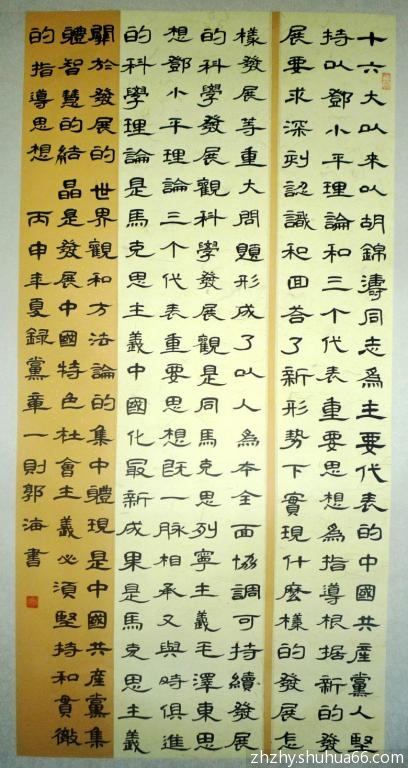 十六大以来以胡錦濤同志為主要代表的中國共產黨人堅
持以鄧小平理論和三个代表重要思想為指導根据新的發
展要求深刻認識和回答了新形势下實現什麼樣的發展怎
樣發展等重大問題形成了以人為本全面協調可持續發展
的科學發展觀科學發展觀是同馬克思列寧主義毛澤東思
想鄧小平理論三个代表重要思想既一脈相承又與時俱進
的科學理論是馬克思主義中國化最新成果是馬克思主義
關於發展的世界觀和方法論的集中體現是中國共產黨集
體智慧的結晶是發展中國特色社會主義必須堅持和貫徹
的指導思想 丙申年夏録黨章一則郭海書
zhzhy.shuhua66.com